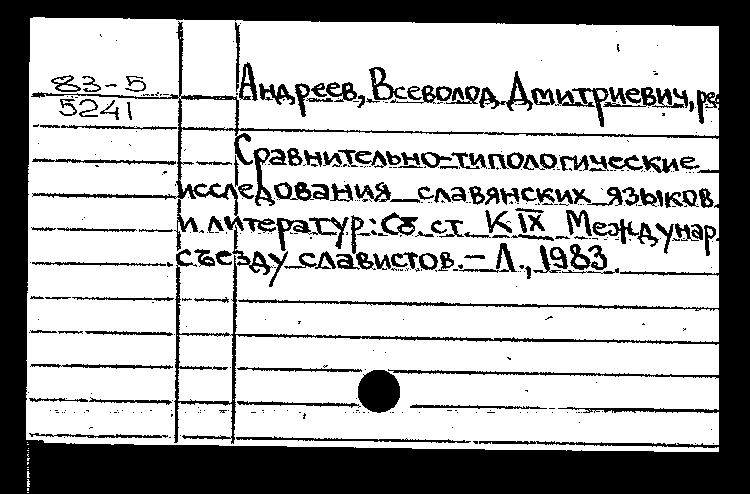 83-5
5241
Андреев, Всеволод Дмитриевич, ре
Сравнительно-типологические
исследования славянских языков
и литератур: Сб. ст. К IX Междунар.
съезду славистов. – Л., 1983.